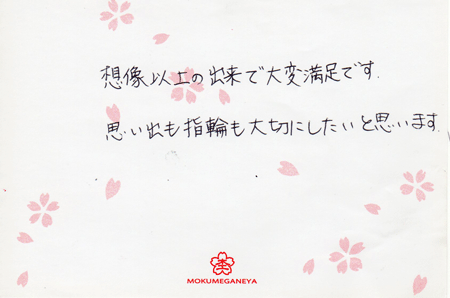 想像以上の出来で大変満足です.
思い出も指輪も大切にしたいと思います.
MOKUMEGANEYA